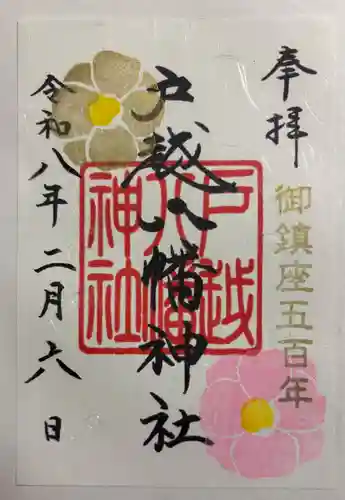 奉拝
御鎮座五百年
戸越八幡神社
戸越八幡神社
令和八年二月六日